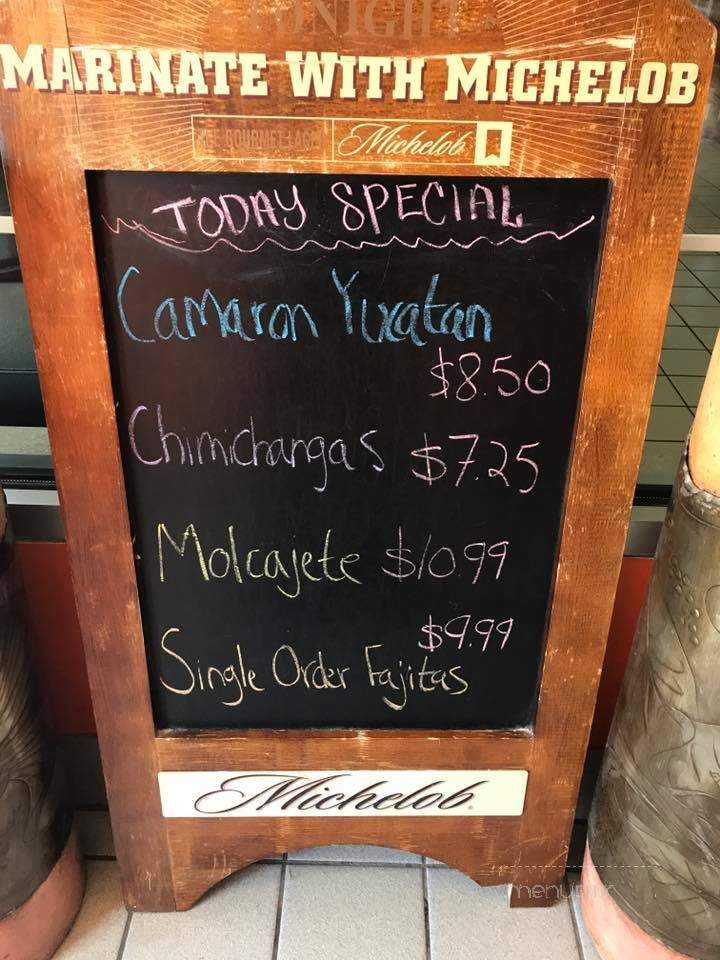 TONIGHT
MARINATE WITH MICHELOB
Michelob
TODAY SPECIAL
Camaron Yuxatan
$8.50
Chimichangas $7.25
Molcajete $10.99
$9.99
Single Order Fajitas
Michelob